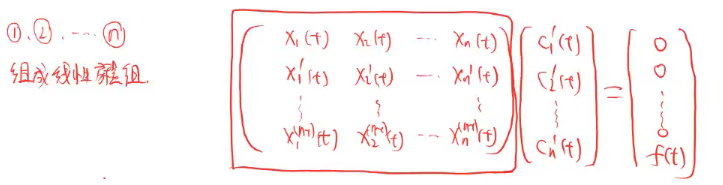 ①、②、……ⓝ
组成线性方程组.
x₁(t) x₂(t) ⋯ xₙ(t)
x₁′(t) x₂′(t) ⋯ xₙ′(t)
⋮ ⋮ ⋮
x₁⁽ⁿ⁻¹⁾(t) x₂⁽ⁿ⁻¹⁾(t) ⋯ xₙ⁽ⁿ⁻¹⁾(t)
c₁′(t)
c₂′(t)
⋮
cₙ′(t)
=
0
0
⋮
0
f(t)